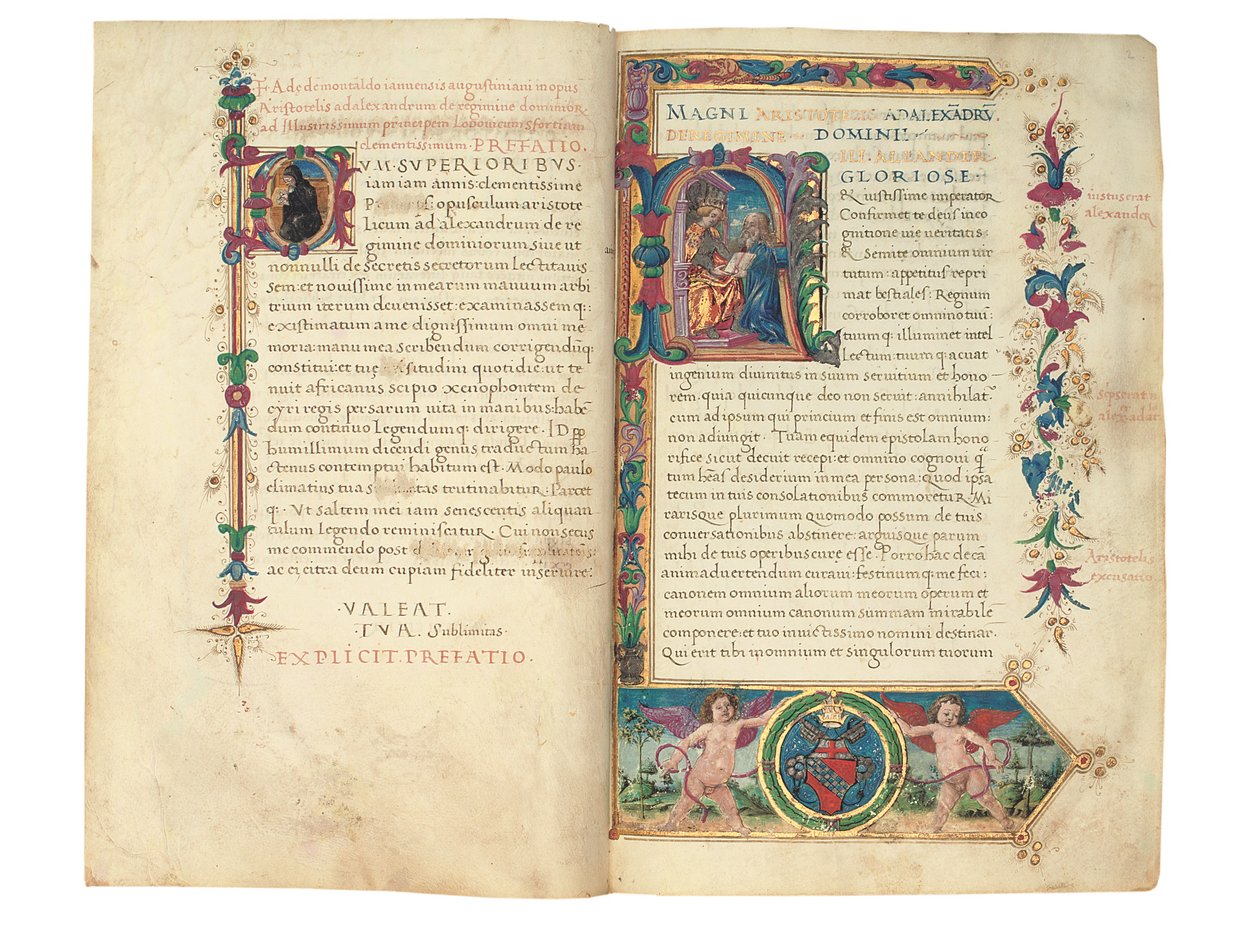 F. A de de montaldo ianuensis augustiniani in opus
Aristotelis ad alexandrum de regimine dominior.
ad Illustrissimum principem Lodovicum Sfortiam
clementissimum. PREFATIO.
UM. SUPERIORIBUS.
iam iam annis: clementissime
P: opusculum aristote
licum ad alexandrum de re
gimine dominiorum siue ut
nonnulli de secretis secretorum Lectitauis
sem: et nouissime in mearum manuum arbi
trium iterum deuenisset: examinassem q:
existimatum a me dignissimum omni me
moria: manu mea scribendum corrigendūq:
constitui: et tue situdini quotidie: ut te
nuit africanus scipio xenophontem de
cyri regis persarum uita in manibus: habē
dum continuo Legendum q: dirigere.
humillimum dicendi genus traductum ha
ctenus contemptui habitum est. Modo paulo
elimatius tua s tas trutinabitur. Parcet
q:. Ut saltem mei iam senescentis aliquan
tulum Legendo reminiscatur. Cui non secus
me commendo post
ac ei citra deum cupiam fideliter inseruire.
.VALEAT.
.TUA. Sublimitas.
.EXPLICIT. PREFATIO.
2
MAGNI ARISTOTELIS AD ALEXĀDRŪ.
DE REGIMINE DOMINII
ALEXANDER
GLORIOSE.
& iustissime imperator
Confirmet te deus in co
gnitione uie ueritatis
& Semite omnium uir
tutum: appetitus repri
mat bestiales: Regnum
corroboret omnino tui:
tuum q: illuminet intel
Lectum: tuum q: acuat
ingenium diuinitus in suum seruitium et hono
rem. quia quicunque deo non seruit: annihilat.
cum ad ipsum qui princium et finis est omnium:
non adiungit. Tuam equidem epistolam hono
rifice sicut decuit recepi: et omnino cognoui q̄
tum heās desiderium in mea persona: Quod ipsa
tecum in tuis consolationibus commoretur. Mi
rarisque plurimum quomodo possum de tuis
conuersationibus abstinere: arguisque parum
mihi de tuis operibus cure esse. Porro hac de cā
animaduertendum curaui: festinum q: me feci:
canonem omnium aliorum meorum operum et
meorum omnium canonum summam mirabilē
componere: et tuo inuictissimo nomini destinar.
Qui erit tibi in omnium et singulorum tuorum
alexander
Aristotelis
excusatio